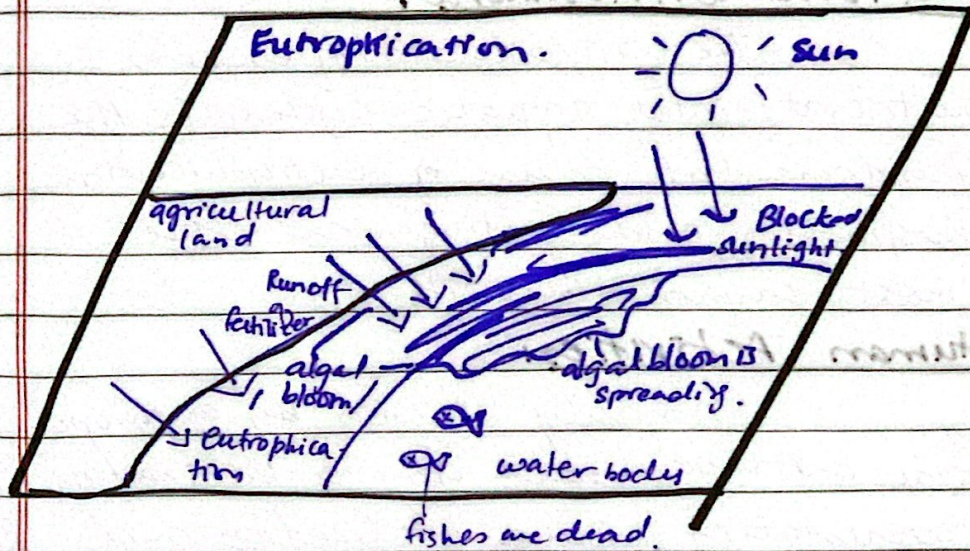 Eutrophication.
sun
agricultural
land
Blocked
sunlight
Runoff
fertilizer
algal
bloom
algal bloom is
spreading.
eutrophica
tion
water bodies
fishes are dead.
Human